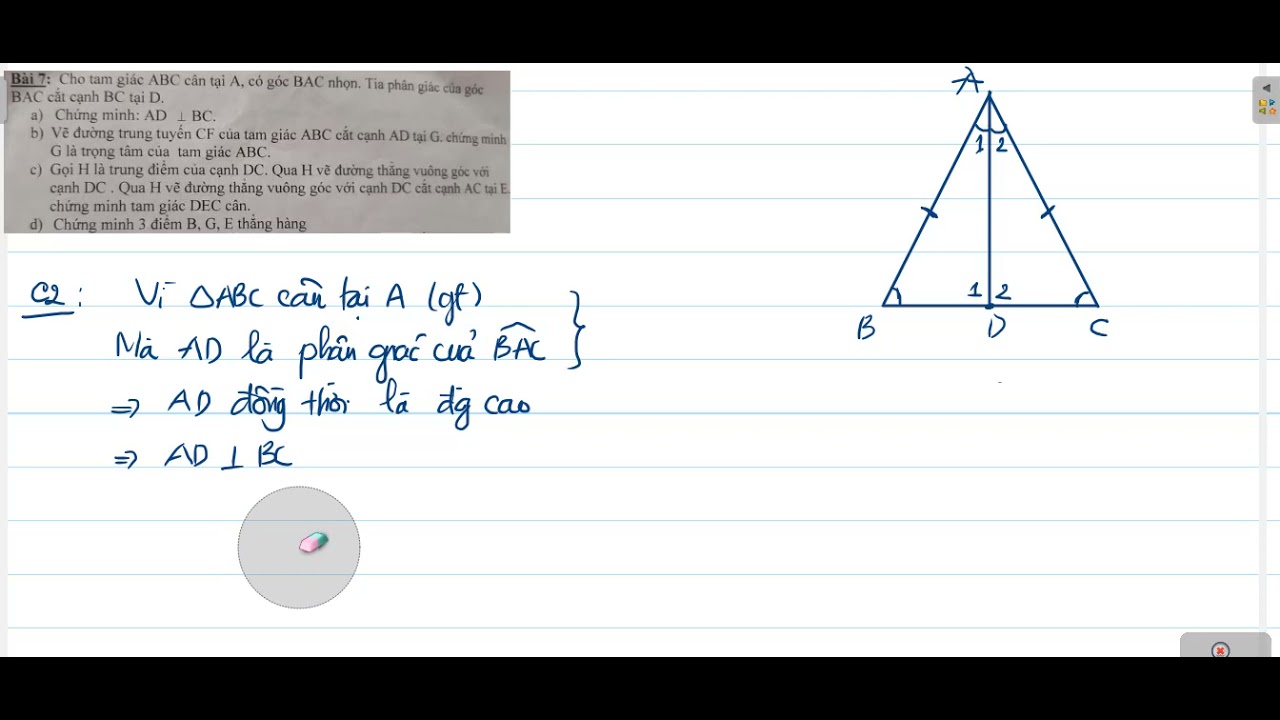 Bài 7: Cho tam giác ABC cân tại A, có góc BAC nhọn. Tia phân giác của góc
BAC cắt cạnh BC tại D.
a) Chứng minh: AD ⊥ BC.
b) Vẽ đường trung tuyến CF của tam giác ABC cắt cạnh AD tại G. chứng minh
G là trọng tâm của tam giác ABC.
c) Gọi H là trung điểm của cạnh DC. Qua H vẽ đường thẳng vuông góc với
cạnh DC . Qua H vẽ đường thẳng vuông góc với cạnh DC cắt cạnh AC tại E.
chứng minh tam giác DEC cân.
d) Chứng minh 3 điểm B, G, E thẳng hàng
C2 : Vì △ABC cân tại A (gt)
Mà AD là phân giác của BAC
⇒ AD đồng thời là đg cao
⇒ AD ⊥ BC
A
1 2
1 2
B D C